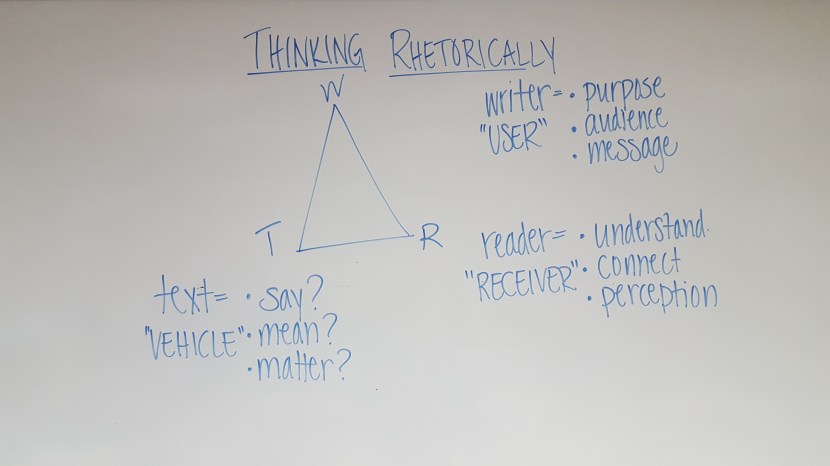 THINKING RHETORICALLY
W
writer= • purpose
"USER" • audience
• message
T
R
reader= • understand.
"RECEIVER" • connect
• perception
text= • say?
"VEHICLE" • mean?
• matter?